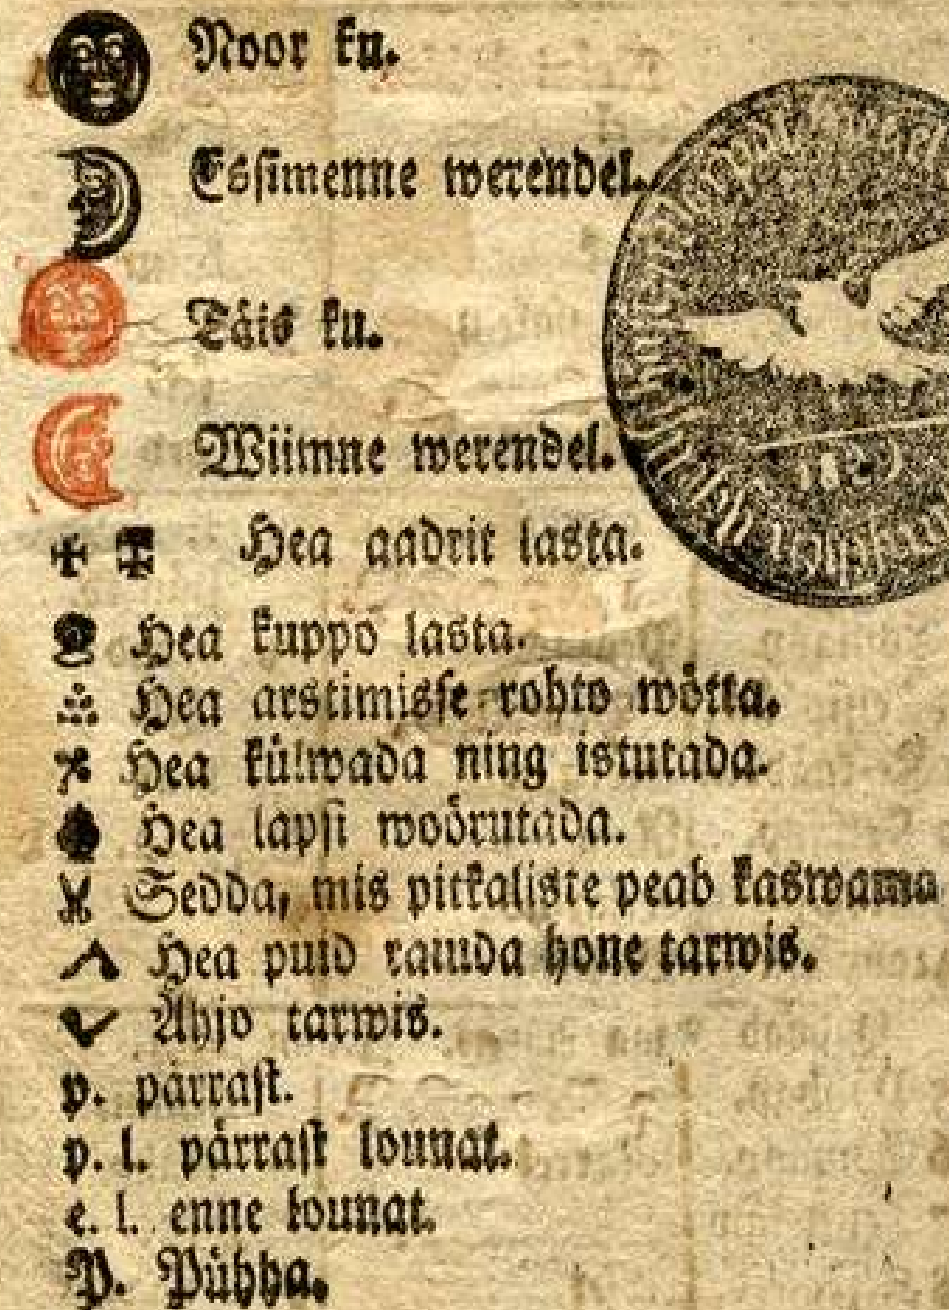 Noor ku.
Essimenne werendel.
Täis ku.
Wiimne werendel.
Hea aadrit lasta.
Hea kuppo lasta.
Hea arstimisse-rohto wötta.
Hea külwada ning istutada.
Hea lapsi woörutada.
Sedda, mis pitkaliste peab kaswama
Hea puid raiuda hone tarwis.
Ahjo tarwis.
p. pärrast.
p. l. pärrast lounat.
e. l. enne lounat.
P. Pühha.